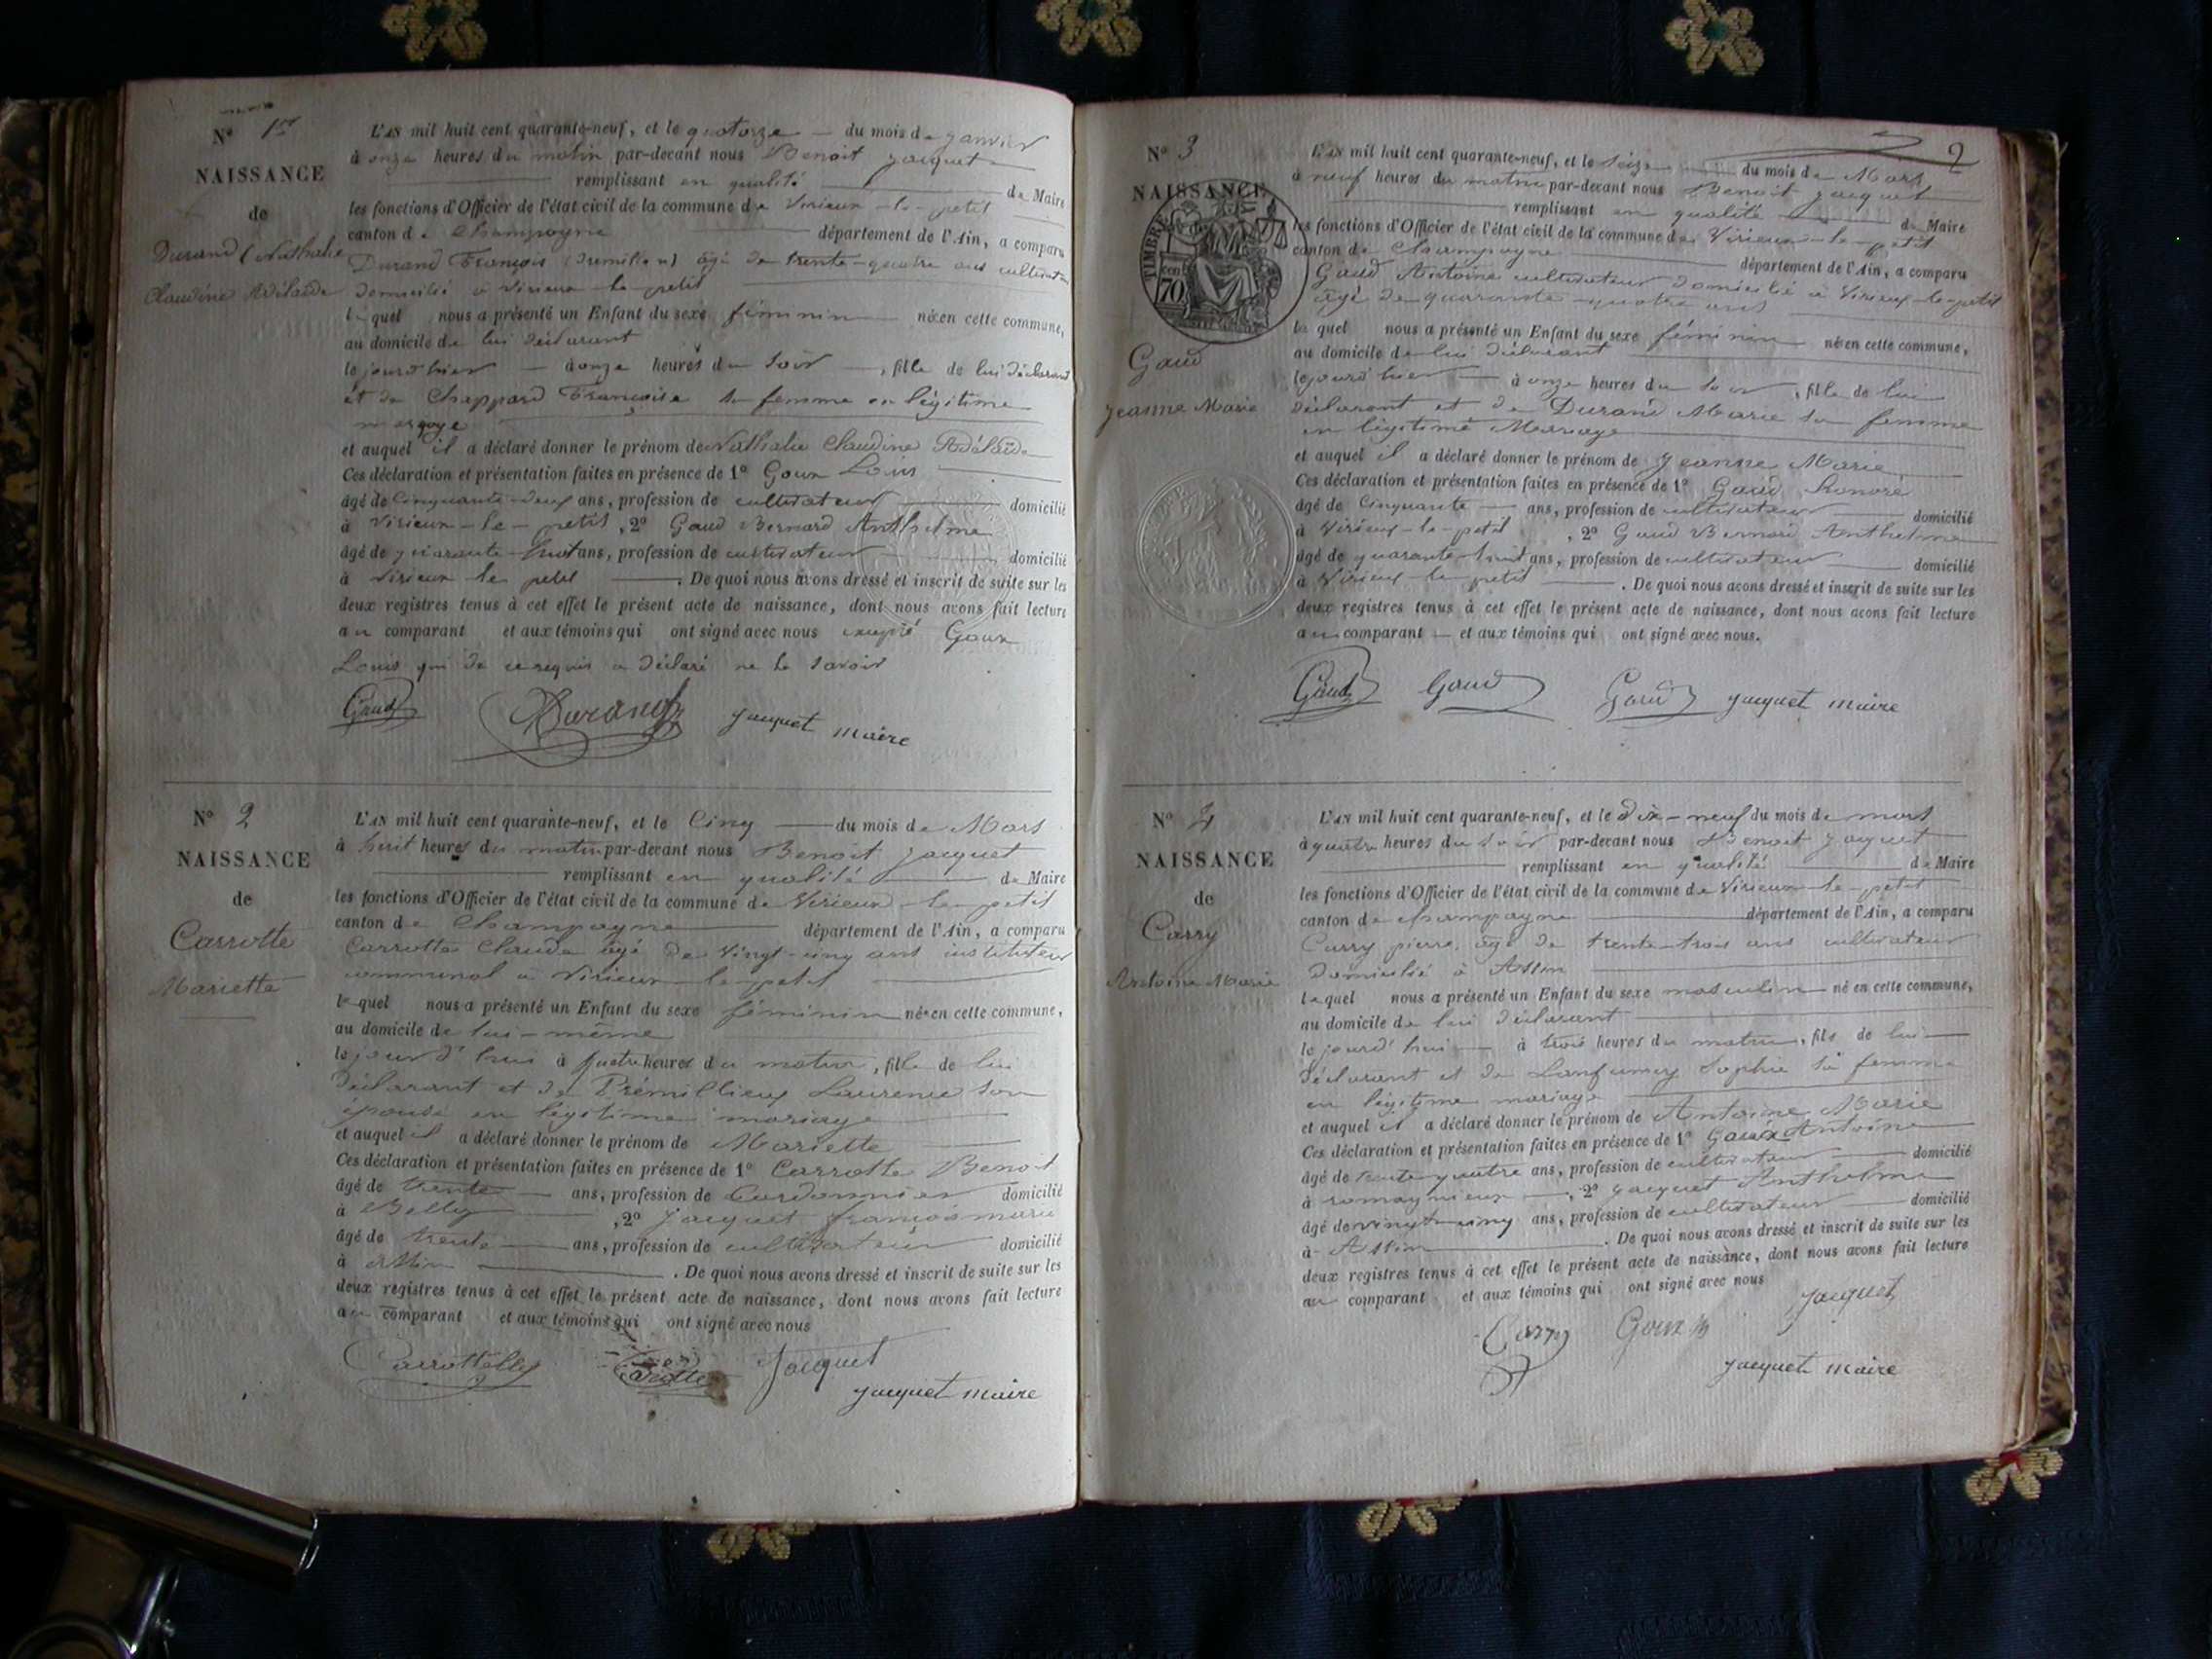 N° 1er
NAISSANCE
de
Durand (Nathalie
Claudine Adélaïde
L'AN mil huit cent quarante-neuf, et le quatorze du mois de janvier
à onze heures du matin par-devant nous Benoit jacquet
remplissant en qualité de Maire
les fonctions d'Officier de l'état civil de la commune de Virieux-le-petit
canton de Champagne département de l'Ain, a comparu
Durand François âgé de trente-quatre ans cultivateur
domicilié à Virieux-le-petit
lequel nous a présenté un Enfant du sexe féminin née en cette commune,
au domicile de lui déclarant
le jour d'hier à onze heures du soir, fille de lui déclarant
et de Chappard Françoise sa femme en légitime
mariage
et auquel il a déclaré donner le prénom de Nathalie Claudine Adélaïde
Ces déclaration et présentation faites en présence de 1° Goux Louis
âgé de Cinquante-deux ans, profession de cultivateur domicilié
à Virieux-le-petit, 2° Gaud Bernard Anthelme
âgé de quarante-huit ans, profession de cultivateur domicilié
à Virieux le petit. De quoi nous avons dressé et inscrit de suite sur les
deux registres tenus à cet effet le présent acte de naissance, dont nous avons fait lecture
au comparant et aux témoins qui ont signé avec nous excepté Goux
Louis qui de ce requis a déclaré ne le savoir
Gaud Durand jacquet maire
N° 2
NAISSANCE
de
Carrotte
Mariette
L'AN mil huit cent quarante-neuf, et le Cinq du mois de Mars
à huit heures du matin par-devant nous Benoit jacquet
remplissant en qualité de Maire
les fonctions d'Officier de l'état civil de la commune de Virieux-le-petit
canton de Champagne département de l'Ain, a comparu
Carrotte Claude âgé de Vingt-cinq ans instituteur
communal à Virieux-le-petit
lequel nous a présenté un Enfant du sexe féminin née en cette commune,
au domicile de lui-même
le jourd'hui à quatre heures du matin, fille de lui
déclarant et de Prémillieux Laurence son
épouse en légitime mariage
et auquel il a déclaré donner le prénom de Mariette
Ces déclaration et présentation faites en présence de 1° Carrotte Benoit
âgé de trente ans, profession de Cordonnier domicilié
à Belley, 2° jacquet françois marie
âgé de trente ans, profession de cultivateur domicilié
à Assin. De quoi nous avons dressé et inscrit de suite sur les
deux registres tenus à cet effet le présent acte de naissance, dont nous avons fait lecture
au comparant et aux témoins qui ont signé avec nous
Jacquet
jacquet maire
2
N° 3
NAISSANCE
TIMBRE
70
Gaud
jeanne Marie
L'AN mil huit cent quarante-neuf, et le seize du mois de Mars
à neuf heures du matin par-devant nous Benoit jacquet
remplissant en qualité de Maire
les fonctions d'Officier de l'état civil de la commune de Virieux-le-petit
canton de Champagne département de l'Ain, a comparu
Gaud Antoine cultivateur domicilié à Virieux-le-petit
âgé de quarante-quatre ans
lequel nous a présenté un Enfant du sexe féminin née en cette commune,
au domicile de lui déclarant
le jour d'hier à onze heures du soir, fille de lui
déclarant et de Durand Marie sa femme
en légitime Mariage
et auquel il a déclaré donner le prénom de jeanne Marie
Ces déclaration et présentation faites en présence de 1° Gaud honoré
âgé de Cinquante ans, profession de cultivateur domicilié
à Virieux-le-petit, 2° Gaud Bernard Anthelme
âgé de quarante-huit ans, profession de cultivateur domicilié
à Virieux-le-petit. De quoi nous avons dressé et inscrit de suite sur les
deux registres tenus à cet effet le présent acte de naissance, dont nous avons fait lecture
au comparant et aux témoins qui ont signé avec nous.
Gaud Gaud Gaud jacquet maire
N° 4
NAISSANCE
de
Carry
Antoine Marie
L'AN mil huit cent quarante-neuf, et le dix-neuf du mois de mars
à quatre heures du soir par-devant nous Benoit jacquet
remplissant en qualité de Maire
les fonctions d'Officier de l'état civil de la commune de Virieux-le-petit
canton de champagne département de l'Ain, a comparu
Carry pierre, âgé de trente-trois ans cultivateur
domicilié à Assin
lequel nous a présenté un Enfant du sexe masculin né en cette commune,
au domicile de lui déclarant
le jourd'hui à trois heures du matin, fils de lui
déclarant et de Lanfumey Sophie sa femme
en légitime mariage
et auquel il a déclaré donner le prénom de Antoine Marie
Ces déclaration et présentation faites en présence de 1° Antoine
âgé de trente-quatre ans, profession de cultivateur domicilié
à romagnieux, 2° jacquet Anthelme
âgé de vingt-cinq ans, profession de cultivateur domicilié
à Assin. De quoi nous avons dressé et inscrit de suite sur les
deux registres tenus à cet effet le présent acte de naissance, dont nous avons fait lecture
au comparant et aux témoins qui ont signé avec nous
Carry jacquet
jacquet maire